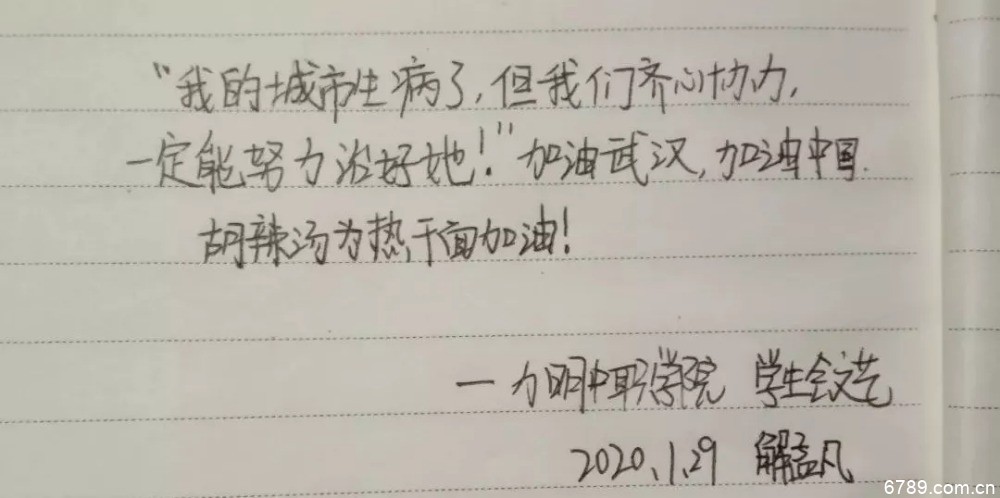 “我的城市生病了,但我们齐心协力,
一定能努力治好她!”加油武汉,加油中国.
胡辣汤为热干面加油!
一力明中职学院 学生会文艺
2020.1.29 解孟凡
6789.com.cn